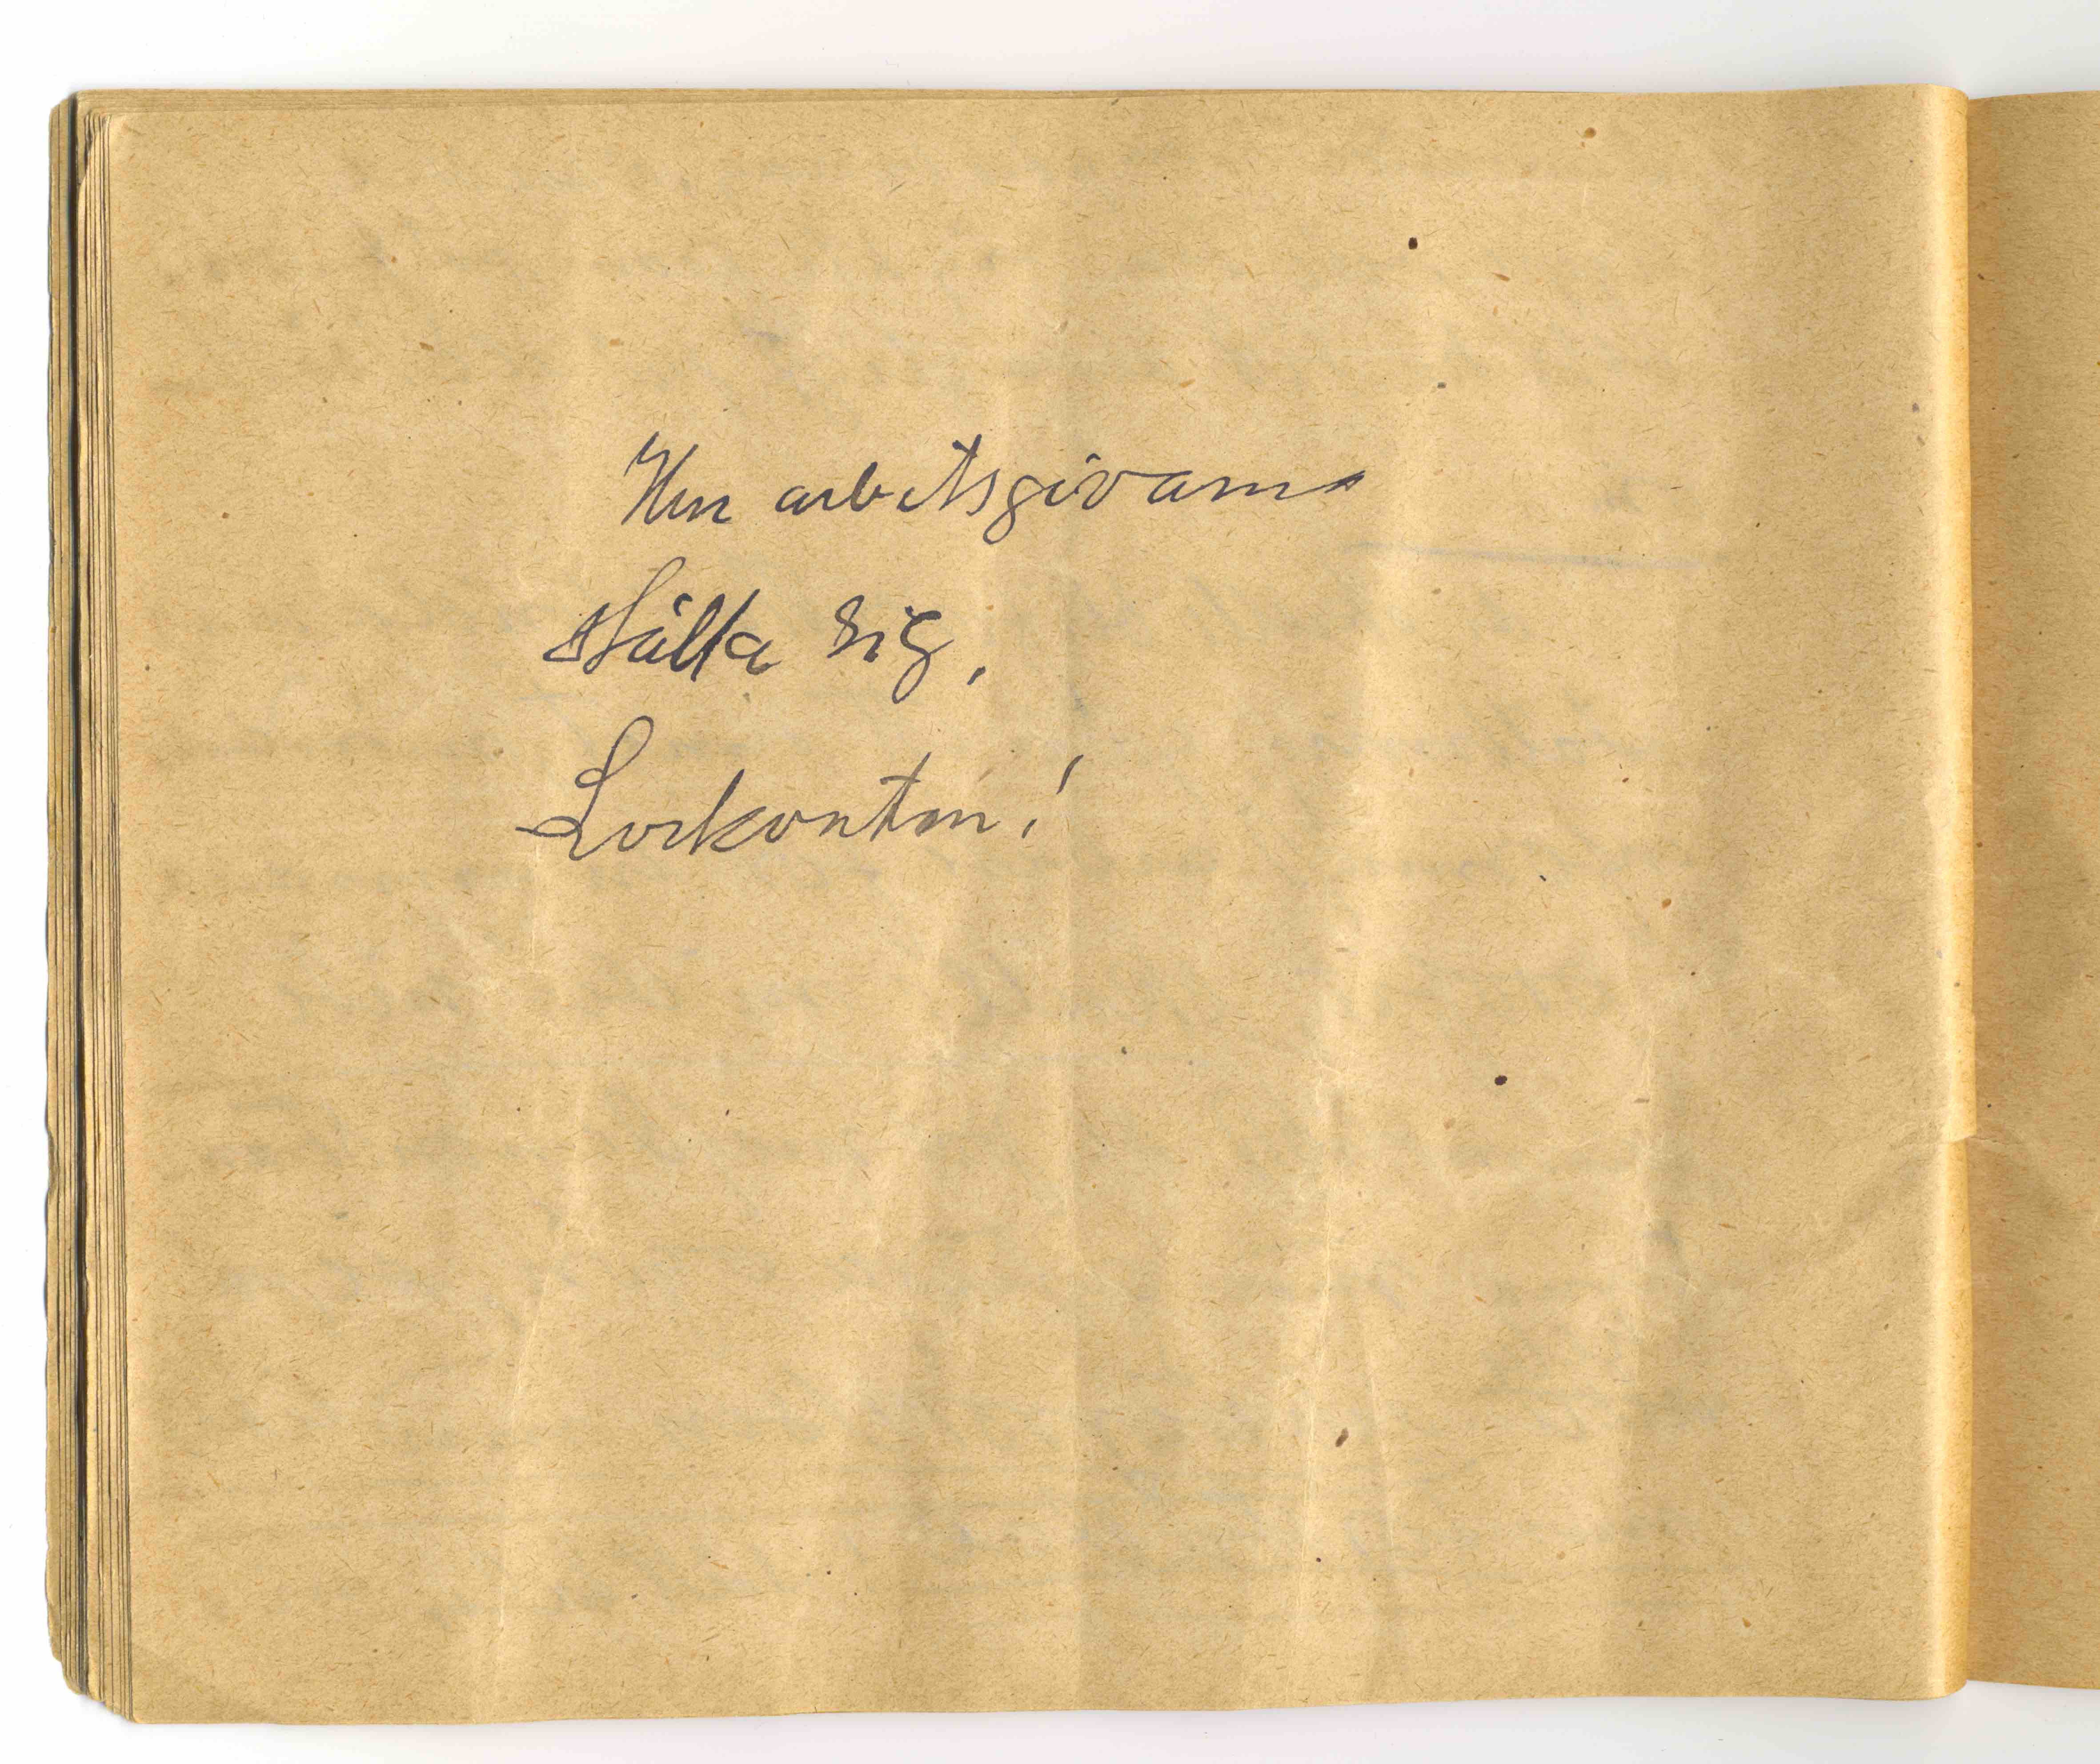 Hur arbetsgivarna
ställa sig,
Lockouten!